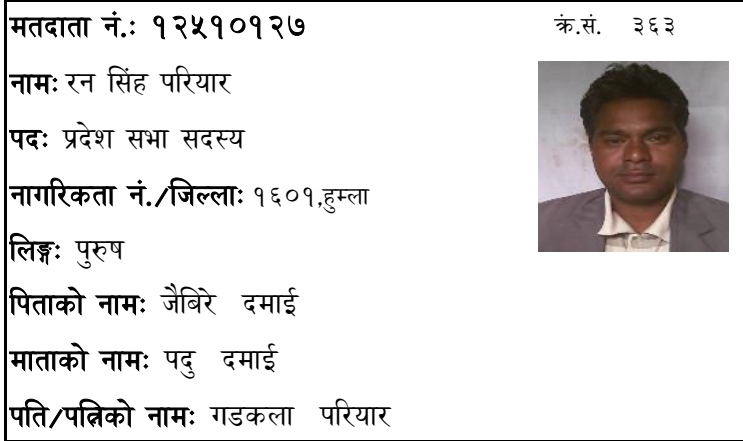 मतदाता नं.: १२५१०१२७ क्रं.सं. ३६३
नामः रन सिंह परियार
पदः प्रदेश सभा सदस्य
नागरिकता नं./जिल्लाः १६०१,हुम्ला
लिङ्गः पुरुष
पिताको नामः जैबिरे दमाई
माताको नामः पदु दमाई
पति/पत्निको नामः गडकला परियार